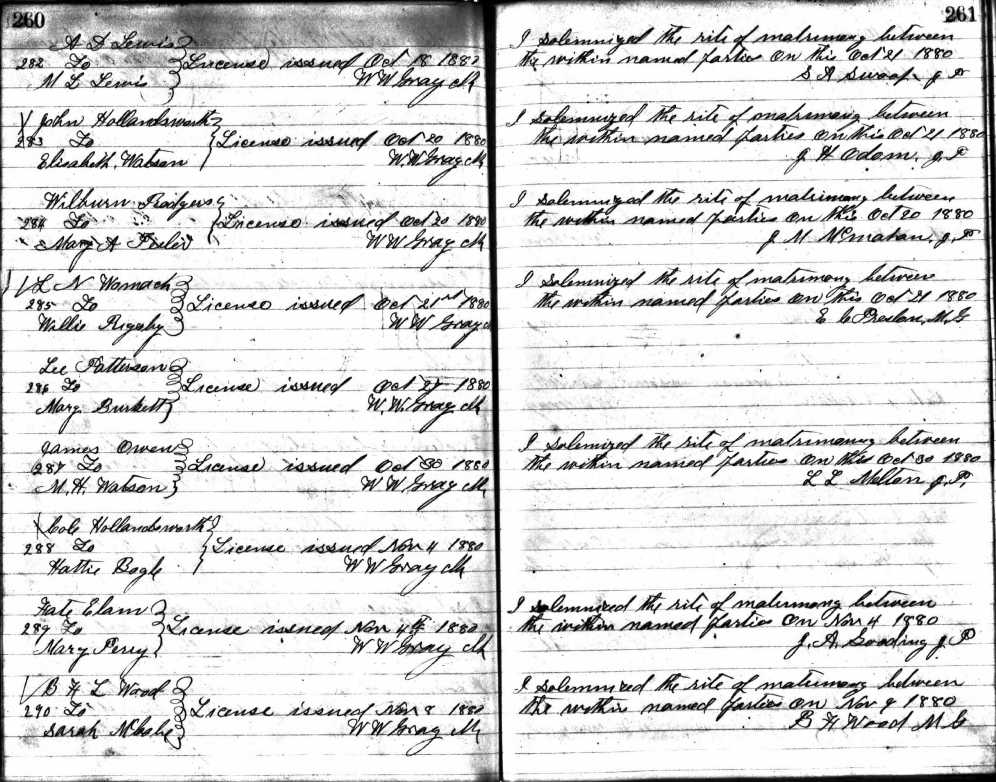 260
A D Lewis
282 To License issued Oct 18 1880
M L Lewis W W Gray Clk
John Hollandsworth
283 To License issued Oct 20 1880
Elisabeth Watson W. W. Gray Clk
Wilburn Bridgers
284 To License issued Oct 20 1880
Mary A W W Gray Clk
L N Womack
285 To License issued Oct 21st 1880
Willie Rigsby W W Gray Clk
Lee Patterson
286 To License issued Oct 27 1880
Mary Burkett W. W. Gray Clk
James Owen
287 To License issued Oct 30 1880
M. H. Watson W W Gray Clk
Cole Hollandsworth
288 To License issued Nov 4 1880
Hattie Bogle W W Gray Clk
Fate Elam
289 To License issued Nov 4th 1880
Mary Perry W W Gray Clk
B H L Wood
290 To License issued Nov 8 1880
Sarah W W Gray Clk
261
I solemnized the rite of matrimony between
the within named parties on this Oct 21 1880
S A Swoop J P
I solemnized the rite of matrimony between
the within named parties on this Oct 21 1880
J H Odom. J. P
I solemnized the rite of matrimony between
the within named parties on this Oct 20 1880
J M McMahan. J. P
I solemnized the rite of matrimony between
the within named parties on this Oct 21 1880
E C Preston, M. G
I solemnized the rite of matrimony between
the within named parties on this Oct 30 1880
L L Melton J. P.
I solemnized the rite of matrimony between
the within named parties on Nov 4 1880
J. A. Gooding J P
I solemnized the rite of matrimony between
the within named parties on Nov 9 1880
B H Wood M G